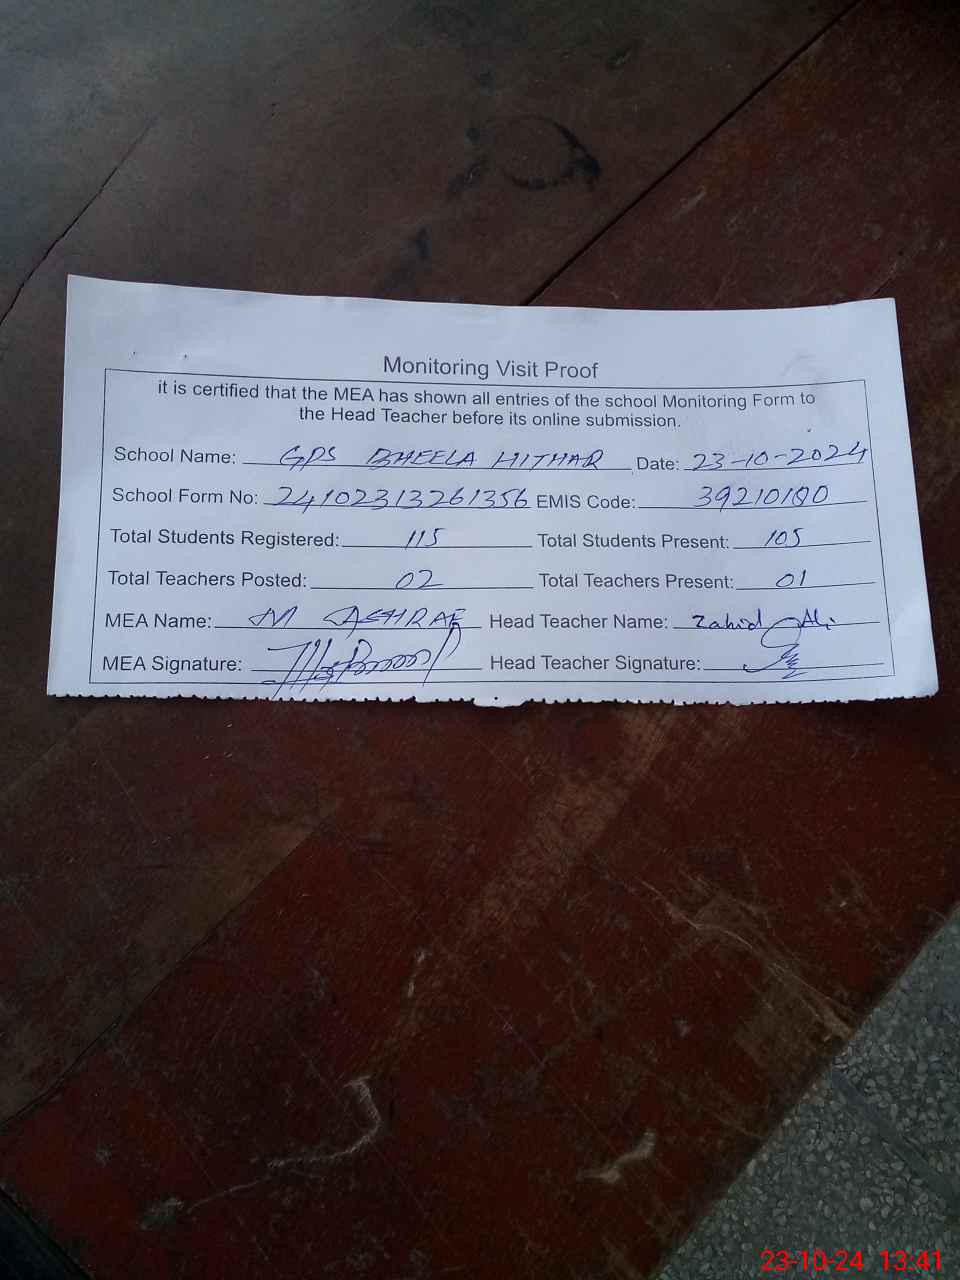 Monitoring Visit Proof
it is certified that the MEA has shown all entries of the school Monitoring Form to
the Head Teacher before its online submission.
School Name: GPS BHEELA HITHAR Date: 23-10-2024
School Form No: 24102313261356 EMIS Code: 39210100
Total Students Registered: 115 Total Students Present: 105
Total Teachers Posted: 02 Total Teachers Present: 01
MEA Name: M ASHRAF Head Teacher Name: Zahid Ali
MEA Signature: Head Teacher Signature:
23-10-24 13:41